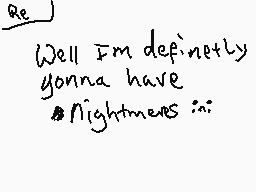 Re
Well I'm definetly
gonna have
nightmares :n: